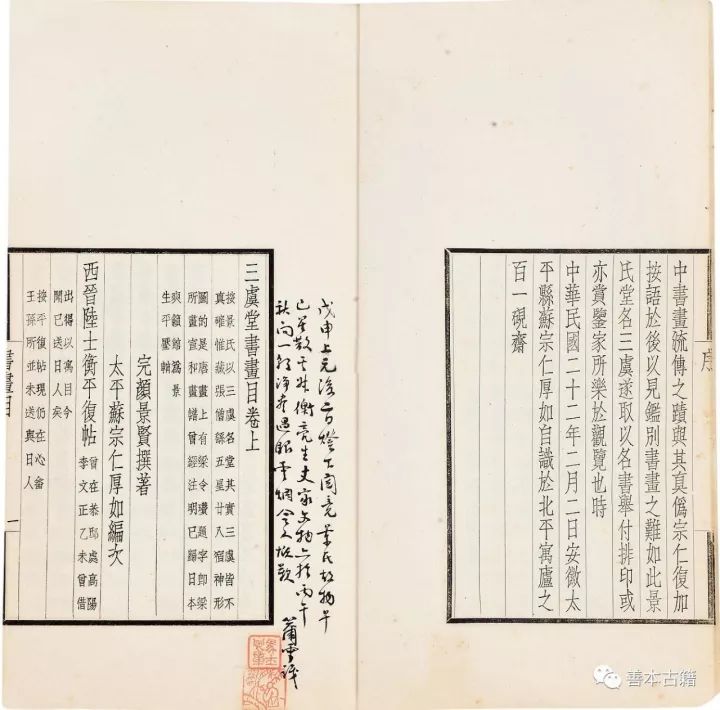 序
中書畫流傳之蹟與其真僞宗仁復加
按語於後以見鑑別書畫之難如此景
氏堂名三虞遂取以名書舉付排印或
亦賞鑒家所樂於觀覽也時
中華民國二十二年二月二日安徽太
平縣蘇宗仁厚如自識於北平寓廬之
百一硯齋
戊申上元後二日燈下閱竟葉氏故物早
已星散其衡亮生史家文物亦於丙午
秋間一過眼雲煙令人浩歎
三虞堂書畫目卷上
按景氏以三虞名堂其實三虞皆不
真確惟藏張僧繇五星廿八宿神形
圖的是唐畫上有梁令瓚題字即梁
所畫宣和畫譜曾經注明已歸日本
爽籟館爲景
生平壓軸
完顏景賢撰著
太平蘇宗仁厚如編次
西晉陸士衡平復帖
曾在恭邸處高陽
李文正乙未曾借
出得以寓目今
聞已送日人矣
按平復帖現仍在心畬
王孫所並未送與日人
書畫目
一
善本古籍